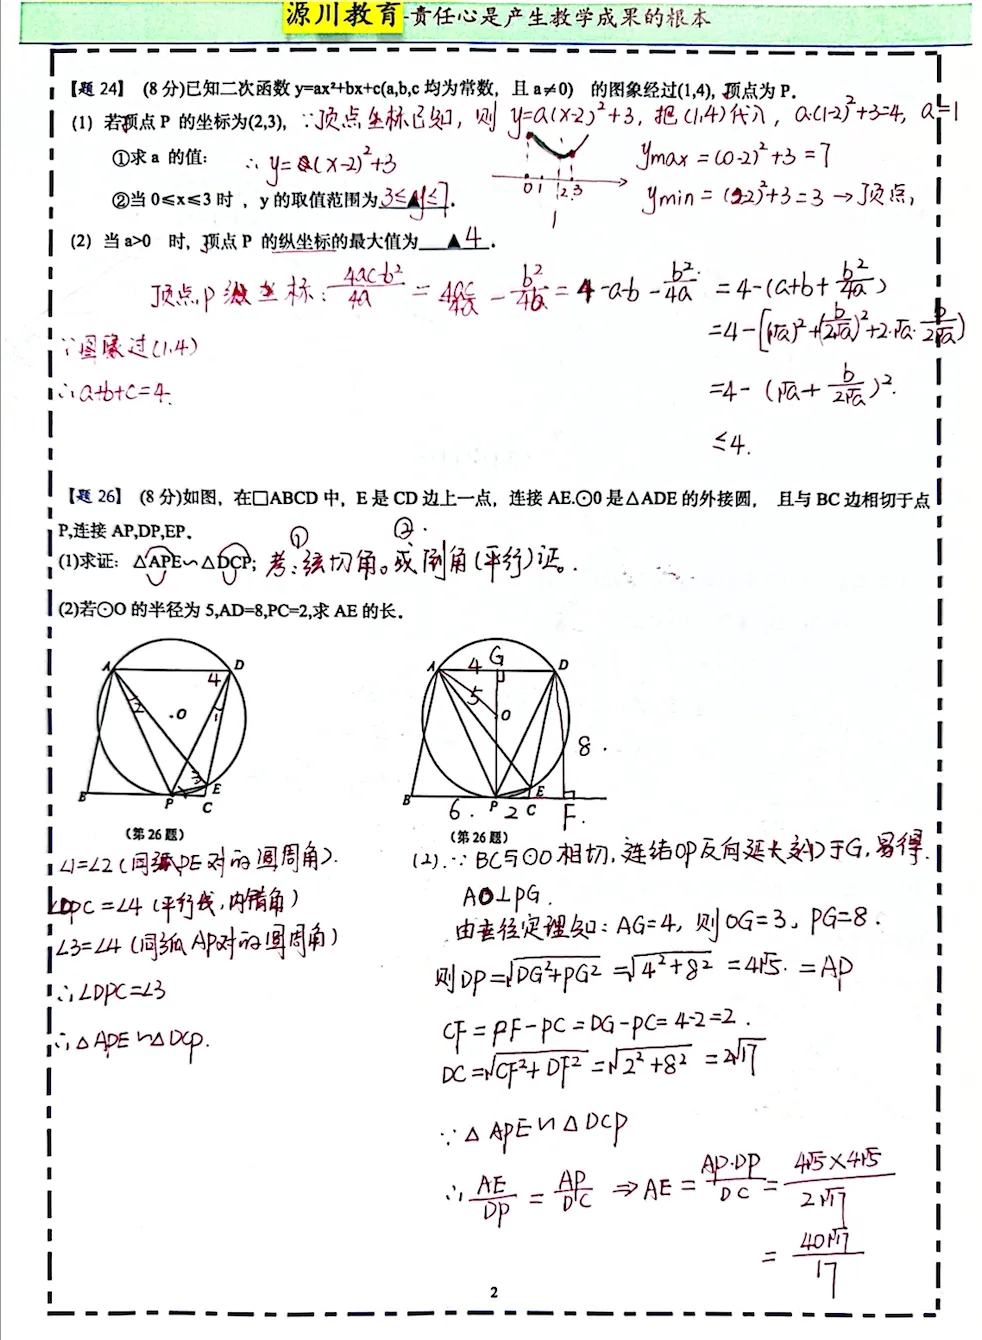 源川教育-责任心是产生教学成果的根本
【题 24】 (8 分)已知二次函数 y=ax²+bx+c(a,b,c 均为常数，且 a≠0) 的图象经过(1,4)，顶点为 P.
(1) 若顶点 P 的坐标为(2,3)，∵顶点坐标已知，则 y=a(x-2)²+3，把(1,4)代入，a·(1-2)²+3=4，a=1
①求 a 的值： ∴ y=(x-2)²+3
0 1 2 3
ymax = (0-2)²+3=7
②当 0≤x≤3 时，y 的取值范围为 3≤▲y≤7 .
ymin = (2-2)²+3=3 → 顶点，
(2) 当 a>0 时，顶点 P 的纵坐标的最大值为 ▲ 4 .
顶点P纵坐标：4ac-b²/4a = 4ac/4a - b²/4a = 4-a-b-b²/4a = 4-(a+b+b²/4a)
=4-[(√a)²+(b/2√a)²+2·√a·b/2√a]
∵图象过(1,4)
∴a+b+c=4.
=4-(√a+b/2√a)².
≤4.
【题 26】 (8 分)如图，在□ABCD 中，E 是 CD 边上一点，连接 AE.⊙0 是△ADE 的外接圆， 且与 BC 边相切于点
P,连接 AP,DP,EP.
① ②.
(1)求证：△APE∽△DCP; 考：弦切角。或倒角(平行)证。.
(2)若⊙O 的半径为 5,AD=8,PC=2,求 AE 的长.
A D 4 2 O 1 3 E B P C
A 4 G D 5 O 8. E B 6. P 2 C F.
(第 26 题)
(第 26 题)
∠1=∠2 (同弧PE对的圆周角).
∠DPC=∠4 (平行线，内错角)
∠3=∠4 (同弧AP对的圆周角)
∴∠DPC=∠3
∴△APE∽△DCP.
(2).∵BC与⊙O相切，连结OP反向延长交AD于G，易得.
AD⊥PG.
由垂径定理知：AG=4，则OG=3，PG=8.
则DP=√DG²+PG² =√4²+8² =4√5. =AP
CF=PF-PC=DG-PC=4-2=2.
DC=√CF²+DF² =√2²+8² =2√17
∵△APE∽△DCP
∴AE/DP = AP/DC ⇒ AE = AP·DP/DC = 4√5×4√5/2√17
= 40√17/17
2